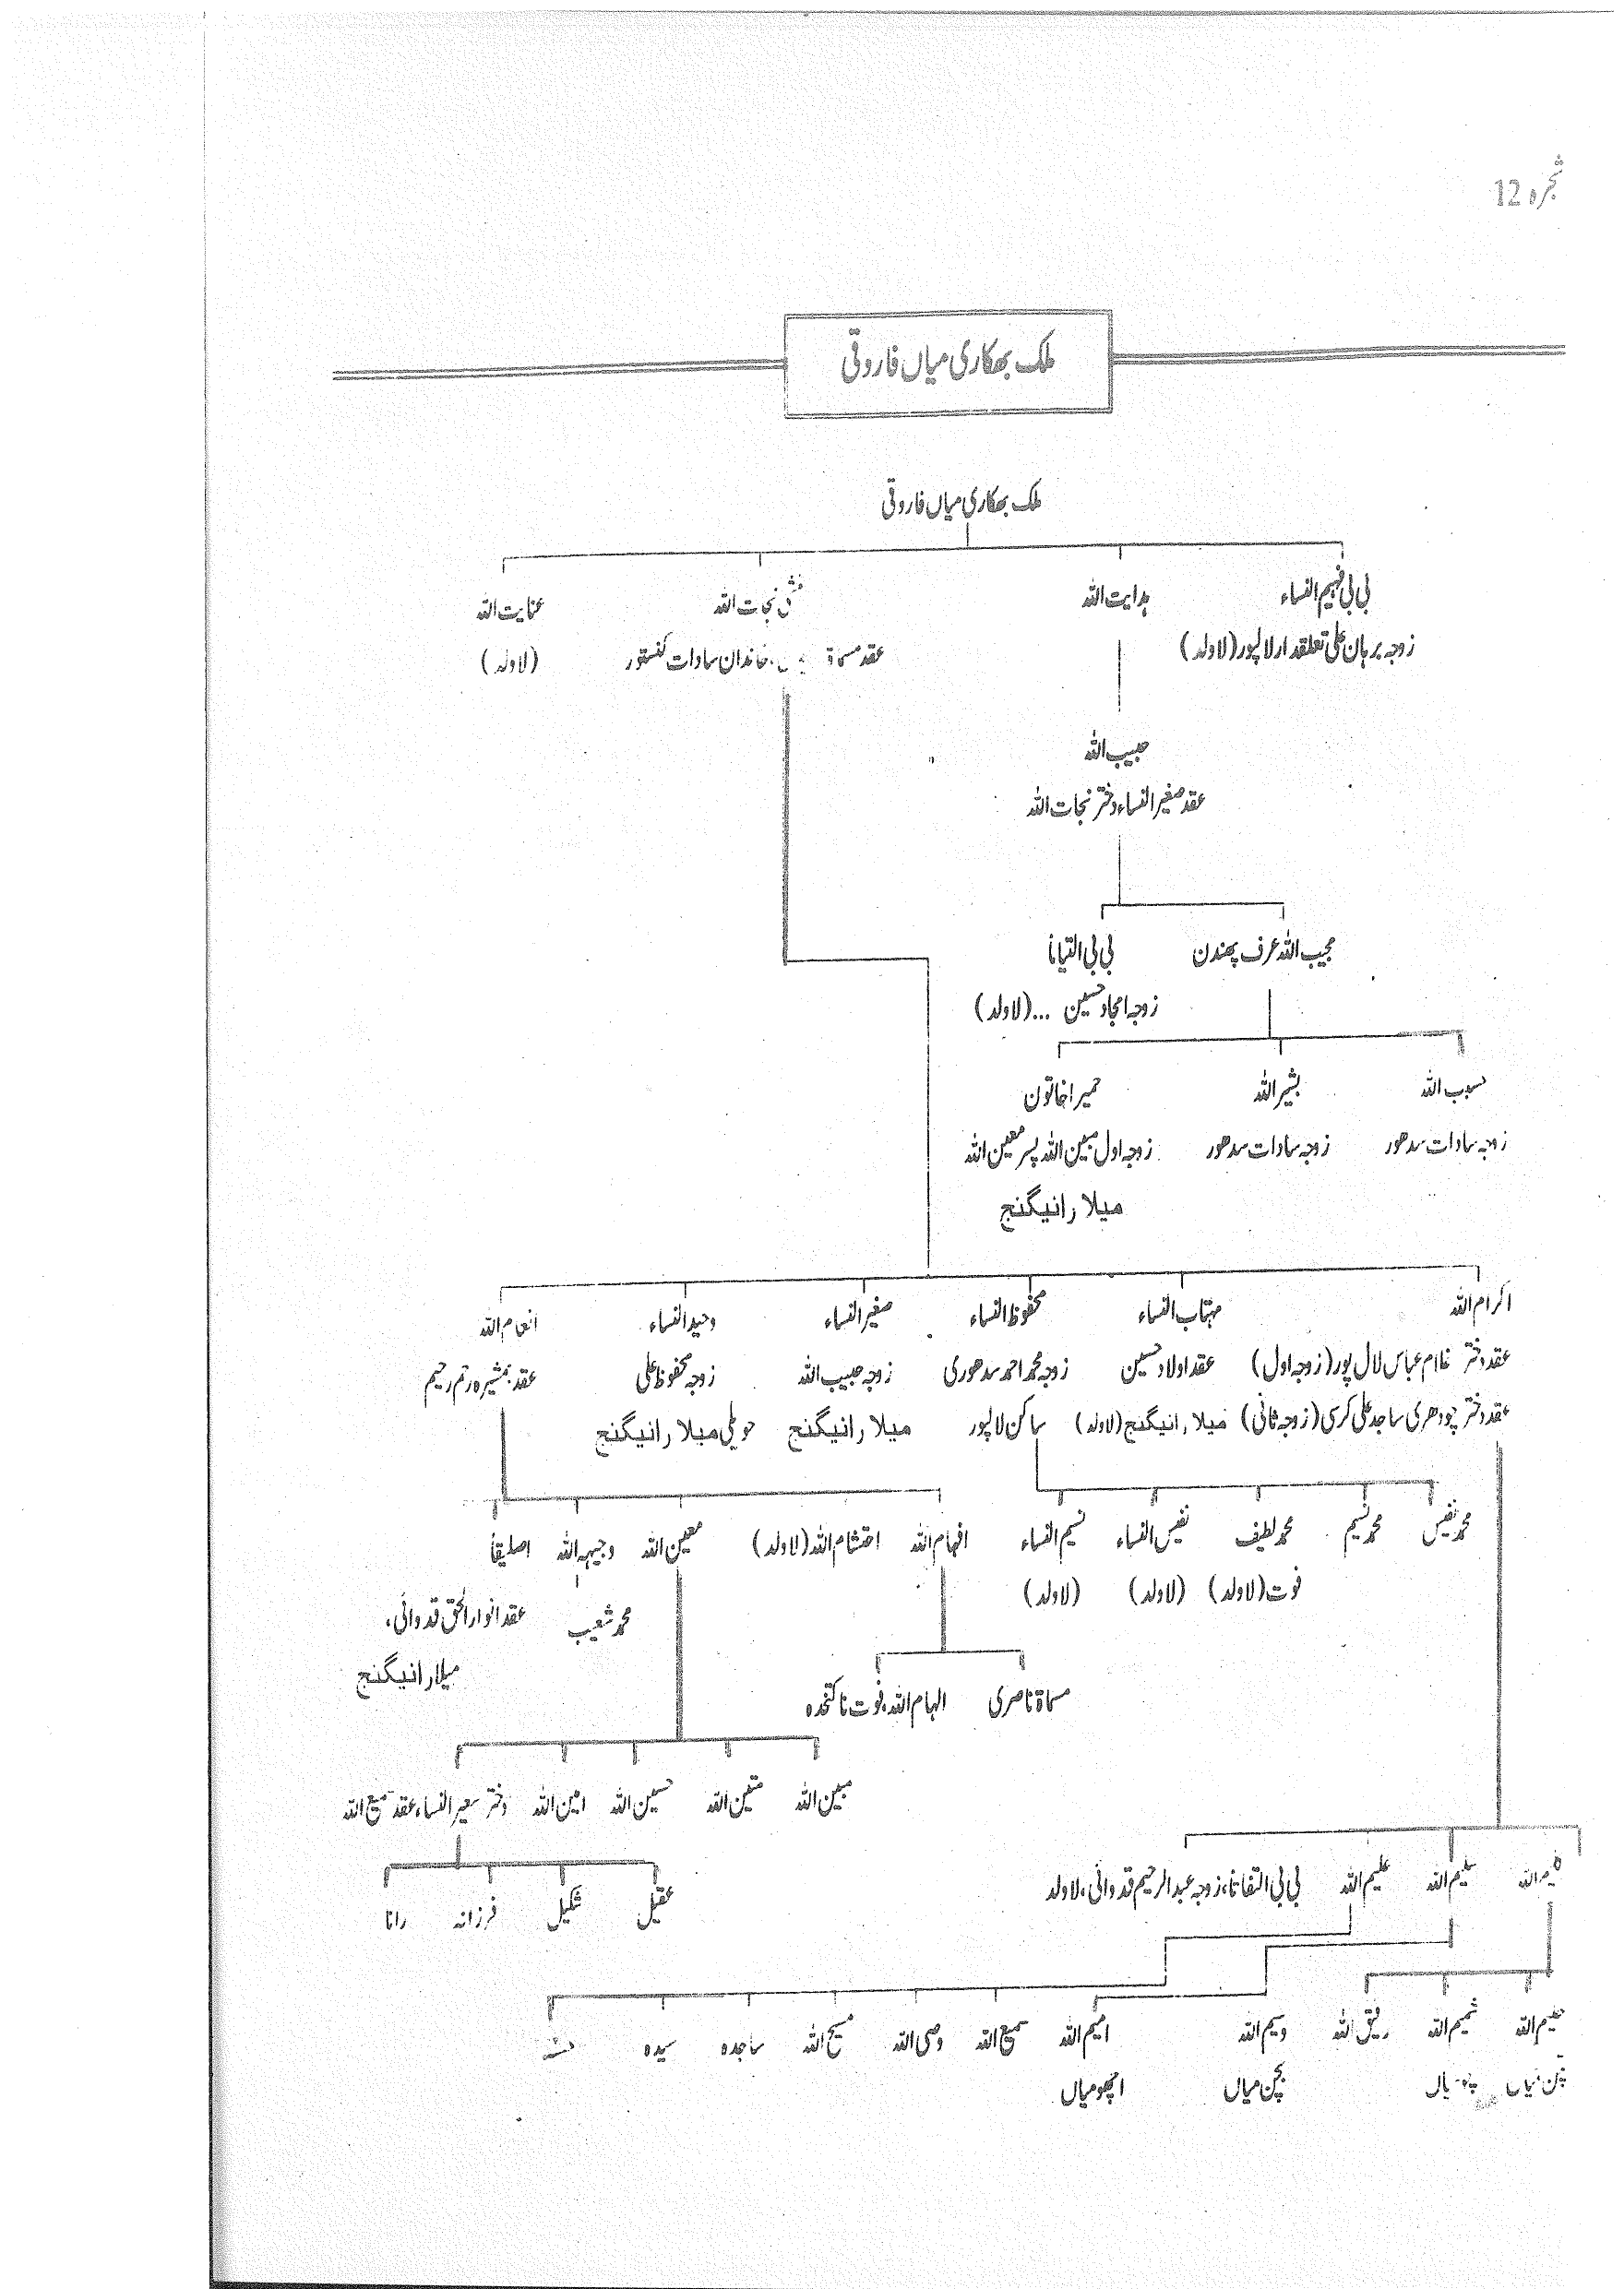 شجرہ 12
ملک بھکاری میاں فاروقی
ملک بھکاری میاں فاروقی
بی بی فہیم النساء
زوجہ برہان علی تعلقدار لالپور (لاولد)
ہدایت اللہ
نجات اللہ
عقد مسماۃ خاندان سادات کنتور
عنایت اللہ
(لاولد)
حبیب اللہ
عقد صغیر النساء دختر نجات اللہ
مجیب اللہ عرف پھندن
بی بی القیانا
زوجہ امجاد حسین ...(لاولد)
اللہ
زوجہ سادات سدھور
بشیر اللہ
زوجہ سادات سدھور
حمیرا خاتون
زوجہ اول مبین اللہ پسر معین اللہ
میلا رانیگنج
اکرام اللہ
عقد دختر غلام عباس لال پور (زوجہ اول)
عقد دختر چودھری ساجد علی کرسی (زوجہ ثانی)
مہتاب النساء
عقد اولاد حسین
میلا رانیگنج (لاولد)
محفوظ النساء
زوجہ محمد احمد سدھوری
ساکن لالپور
صغیر النساء
زوجہ حبیب اللہ
میلا رانیگنج
وحید النساء
زوجہ محفوظ علی
حویلی میلا رانیگنج
انعام اللہ
عقد ہمشیرہ رحیم
محمد نفیس
محمد نسیم
محمد لطیف
فوت (لاولد)
نفیس النساء
(لاولد)
نسیم النساء
(لاولد)
افہام اللہ
احتشام اللہ (لاولد)
معین اللہ
وجیہہ اللہ
محمد شعیب
اصلیقاً
عقد انوار الحق قدوائی،
میلا رانیگنج
مسماۃ ناصری
الہام اللہ، فوت ناکتخدہ
مبین اللہ
متین اللہ
حسین اللہ
امین اللہ
دختر النساء، عقد سمیع اللہ
عقیل
شکیل
فرزانہ
رانا
اللہ
سلیم اللہ
علیم اللہ
بی بی التقانا، زوجہ عبدالرحیم قدوائی، لاولد
اللہ
میاں
شمیم اللہ
رفیق اللہ
وسیم اللہ
بچن میاں
امیم اللہ
اچھو میاں
سمیع اللہ
وصی اللہ
مسیح اللہ
ساجدہ
سیدہ